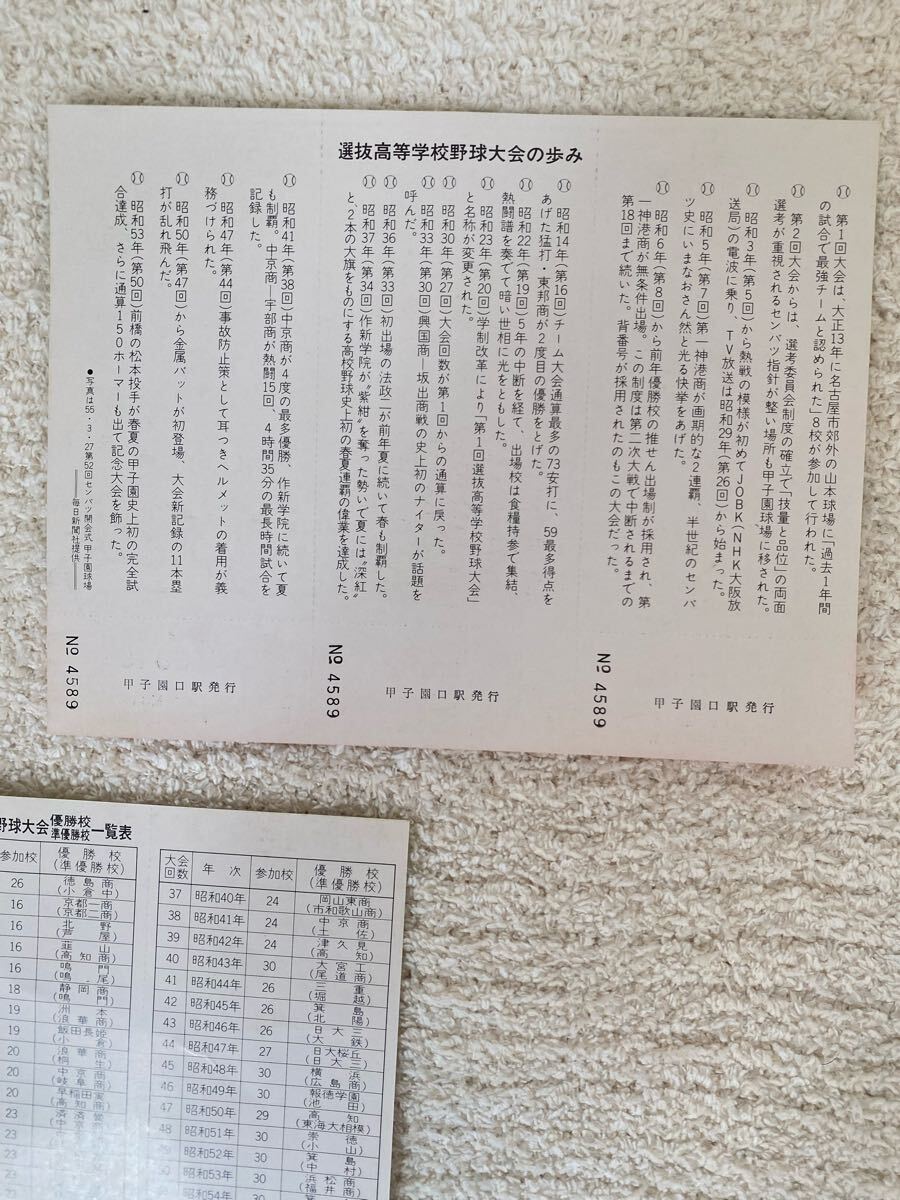 選抜高等学校野球大会の歩み
第1回大会は、大正13年に名古屋市郊外の山本球場に「過去1年間
の試合で最強チームと認められた」8校が参加して行われた。
第2回大会からは、選考委員会制度の確立で「技量と品位」の両面
選考が重視されるセンバツ指針が整い場所も甲子園球場に移された。
昭和3年(第5回)から熱戦の模様が初めてJOBK(NHK大阪放
送局)の電波に乗り、TV放送は昭和29年(第26回)から始まった。
昭和5年(第7回)第一神港商が画期的な2連覇、半世紀のセンバ
ツ史にいまなおさん然と光る快挙をあげた。
昭和6年(第8回)から前年優勝校の推せん出場制が採用され、第
一神港商が無条件出場。この制度は第二次大戦で中断されるまでの
第18回まで続いた。背番号が採用されたのもこの大会だった。
昭和14年(第16回)チーム大会通算最多の73安打に、59最多得点を
あげた猛打・東邦商が2度目の優勝をとげた。
昭和22年(第19回)5年の中断を経て、出場校は食糧持参で集結、
熱闘譜を奏でて暗い世相に光をともした。
昭和23年(第20回)学制改革により「第1回選抜高等学校野球大会」
と名称が変更された。
昭和30年(第27回)大会回数が第1回からの通算に戻った。
昭和33年(第30回)興国商—坂出商戦の史上初のナイターが話題を
呼んだ。
昭和36年(第33回)初出場の法政二が前年夏に続いて春も制覇した。
昭和37年(第34回)作新学院が“紫紺”を奪った勢いで夏には“深紅”
と、2本の大旗をものにする高校野球史上初の春夏連覇の偉業を達成した。
昭和41年(第38回)中京商が4度の最多優勝、作新学院に続いて夏
も制覇。中京商—宇部商が熱闘15回、4時間35分の最長時間試合を
記録した。
昭和47年(第44回)事故防止策として耳つきヘルメットの着用が義
務づけられた。
昭和50年(第47回)から金属バットが初登場、大会新記録の11本塁
打が乱れ飛んだ。
昭和53年(第50回)前橋の松本投手が春夏の甲子園史上初の完全試
合達成、さらに通算150ホーマーも出て記念大会を飾った。
●写真は55・3・27第52回センバツ開会式 甲子園球場
毎日新聞社提供
甲子園口駅発行
No 4589
甲子園口駅発行
No 4589
甲子園口駅発行
No 4589
野球大会優勝校準優勝校一覧表
参加校 優勝校(準優勝校)
26 徳島商(小倉中)
16 京都一商(京都二商)
16 北野(芦屋)
16 韮山(高知商)
16 鳴門(鳴尾)
18 静岡商(鳴門)
19 洲本(浪華商)
19 飯田長姫(小倉)
20 浪華商(桐生)
20 中京商(岐阜商)
20 早稲田実(高知商)
23 済済黌(中京商)
23
23
大会回数 年次 参加校 優勝校(準優勝校)
37 昭和40年 24 岡山東商(市和歌山商)
38 昭和41年 24 中京商(土佐)
39 昭和42年 24 津久見(高知)
40 昭和43年 30 大宮工(尾道商)
41 昭和44年 26 三重(堀越)
42 昭和45年 26 箕島(北陽)
43 昭和46年 26 日大三(大鉄)
44 昭和47年 27 日大桜丘(日大三)
45 昭和48年 30 横浜(広島商)
46 昭和49年 30 報徳学園(池田)
47 昭和50年 29 高知(東海大相模)
48 昭和51年 30 崇徳(小山)
昭和52年 30 箕島(中村)
50 昭和53年 30 浜松商(福井商)
昭和54年 30